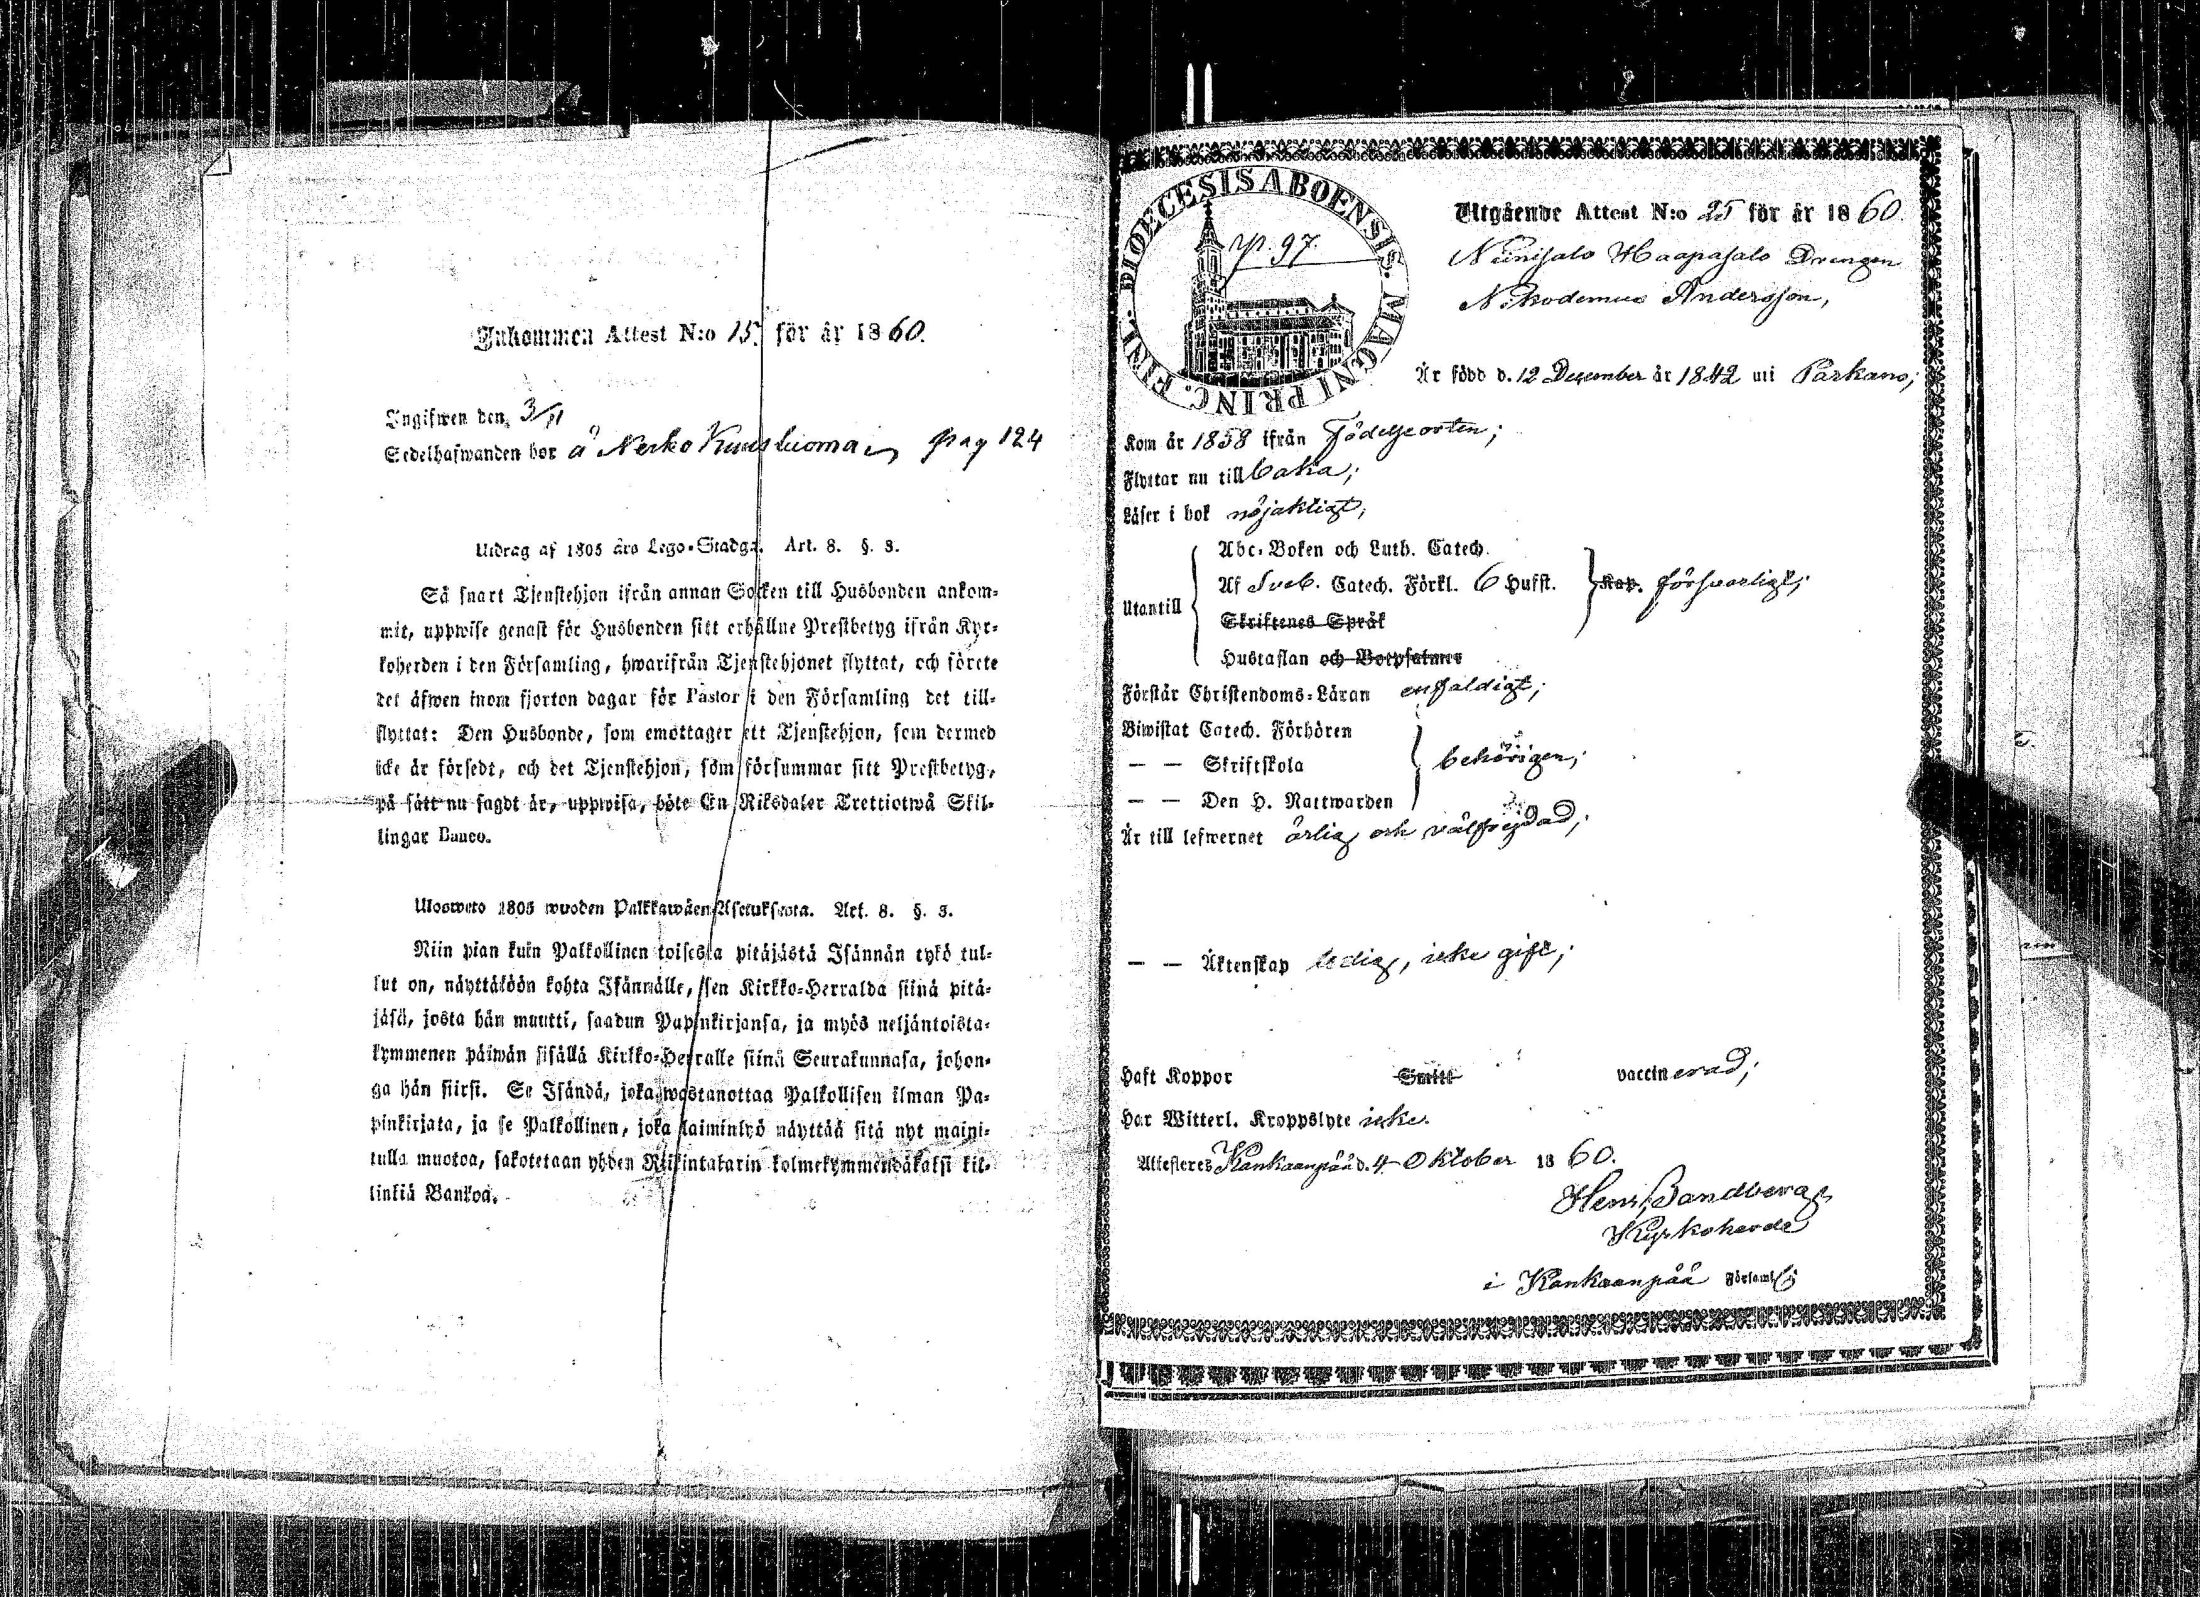 Inkommen Attest N:o 15. för år 1860.
Ingifwen den 3/11
Sedelhafwanden bor å Nerko Kuusluoma pag 124
Utdrag af 1805 års Lego-Stadga. Art. 8. §. 3.
Så snart Tjenstehjon ifrån annan Socken till Husbonden ankom-
mit, uppwise genast för Husbonden sitt erhållne Prestbetyg ifrån Kyr-
koherden i den Församling, hwarifrån Tjenstehjonet flyttat, och förete
det äfwen inom fjorton dagar för Pastor i den Församling det till-
flyttat: Den Husbonde, som emottager ett Tjenstehjon, som dermed
icke är försedt, och det Tjenstehjon, som försummar sitt Prestbetyg,
på sätt nu sagdt är, uppwisa, böte En Riksdaler Trettiotwå Skil-
lingar Banco.
Uloswето 1805 wuoden Palkkawäen Asetuksesta. Art. 8. §. 3.
Niin pian kuin Palkollinen toisesta pitäjästä Isännän tykö tul-
lut on, näyttäköön kohta Isännälle, sen Kirkko-Herralda siinä pitä-
jäsä, josta hän muutti, saadun Papinkirjansa, ja myös neljäntoista-
kymmenen päiwän sisällä Kirkko-Herralle siinä Seurakunnasa, johon-
ga hän siirsi. Se Isändä, joka wastanottaa Palkollisen ilman Pa-
pinkirjata, ja se Palkollinen, joka laiminlyö näyttää sitä nyt maini-
tulla muotoa, sakotetaan yhden Riikintalarin kolmekymmendäkaksi kil-
linkiä Bankoa.
DIOECESIS ABOENSIS. MAGNI PRINC. FINL.
p. 97.
Utgående Attest N:o 25 för år 1860.
Niinisalo Haapasalo Drengen
Nikodemus Andersson,
Är född d. 12 December år 1842 uti Parkano;
Kom år 1858 ifrån Födelseorten;
Flyttar nu till baka;
Läser i bok nöjaktigt;
Utantill
Abc-Boken och Luth. Catech.
Af Sveb. Catech. Förkl. 6 Hufst. Kap. försvarligt;
Skriftenes Språk
Hustaflan och Botpsalmer
Förstår Christendoms-Läran enfaldigt;
Biwistat Catech. Förhören
— — Skriftskola behörigen;
— — Den H. Nattwarden
Är till lefwernet ärlig och välfrejdad;
— — Äktenskap ledig, icke gift;
Haft Koppor Smitt vaccinerad;
Har Witterl. Kroppslyte icke.
Attesteres Kankaanpää d. 4 Oktober 1860.
Henr. Sandberg
Kyrkoherde
i Kankaanpää Församl.